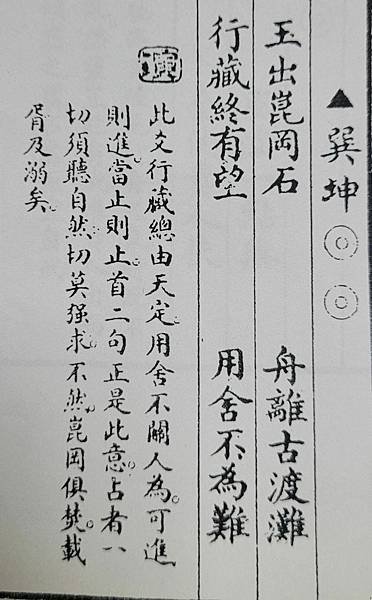 ▲巽坤◎◎
玉出崑岡石　舟離古渡灘
行藏終有望　用舍不為難
演
此爻行藏總由天定。用舍不關人為。可進
則進。當止則止。首二句正是此意。占者八
切須聽自然。切莫强求。不然。崑岡俱焚。載
胥及溺矣。